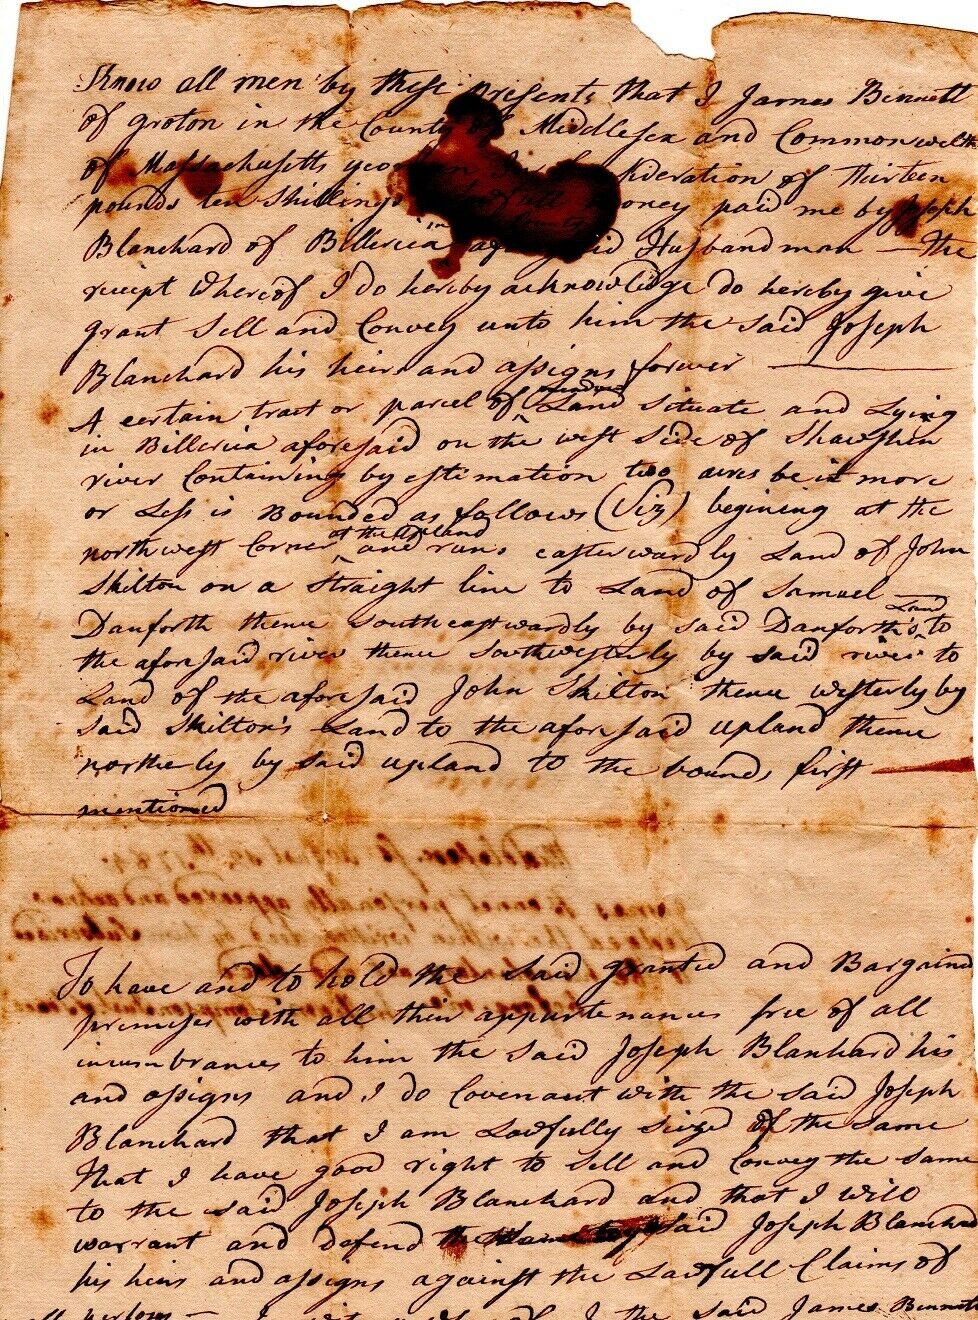 Know all men by these presents that I James Bennett
of groton in the County of Middlesex and Commonwelth
of Massachusetts in Consideration of thirteen
pounds ten shillings Lawfull money paid me by Joseph
Blanchard of Billerica aforesaid Husbandman — the
receipt whereof I do hereby acknowlidge do hereby give
grant Sell and Convey unto him the said Joseph
Blanchard his heirs and assigns forever —
A certain tract or parcel of Land Situate and Lying
in Billerica aforesaid on the west side of Shawshin
river Containing by estimation two acres be it more
or Less is Bounded as follows (Viz) begining at the
at the upland
northwest Corner ^ and runs easterwardly Land of John
Skilton on a straight line to Land of Samuel —
Land
Danforth thence southeastwardly by said Danforth's ^ to
the aforesaid river thence Southwesterly by said river to
Land of the aforesaid John Skilton thence westerly by
said Skilton's Land to the aforesaid upland thence
northerly by said upland to the bounds first
mentioned
Middlesex ss August 1784
James Bennet personally appeared and acknow
To have and to hold the said granted and Bargaind
premises with all their appurtenances free of all
incumbrances to him the said Joseph Blanchard his
and assigns and I do Covenant with the said Joseph
Blanchard that I am Lawfully seized of the same
that I have good right to Sell and Convey the same
to the said Joseph Blanchard and that I will
warrant and defend the same to said Joseph Blanchard
his heirs and assigns against the Lawfull Claims of
all persons — In witness I the said James Bennett